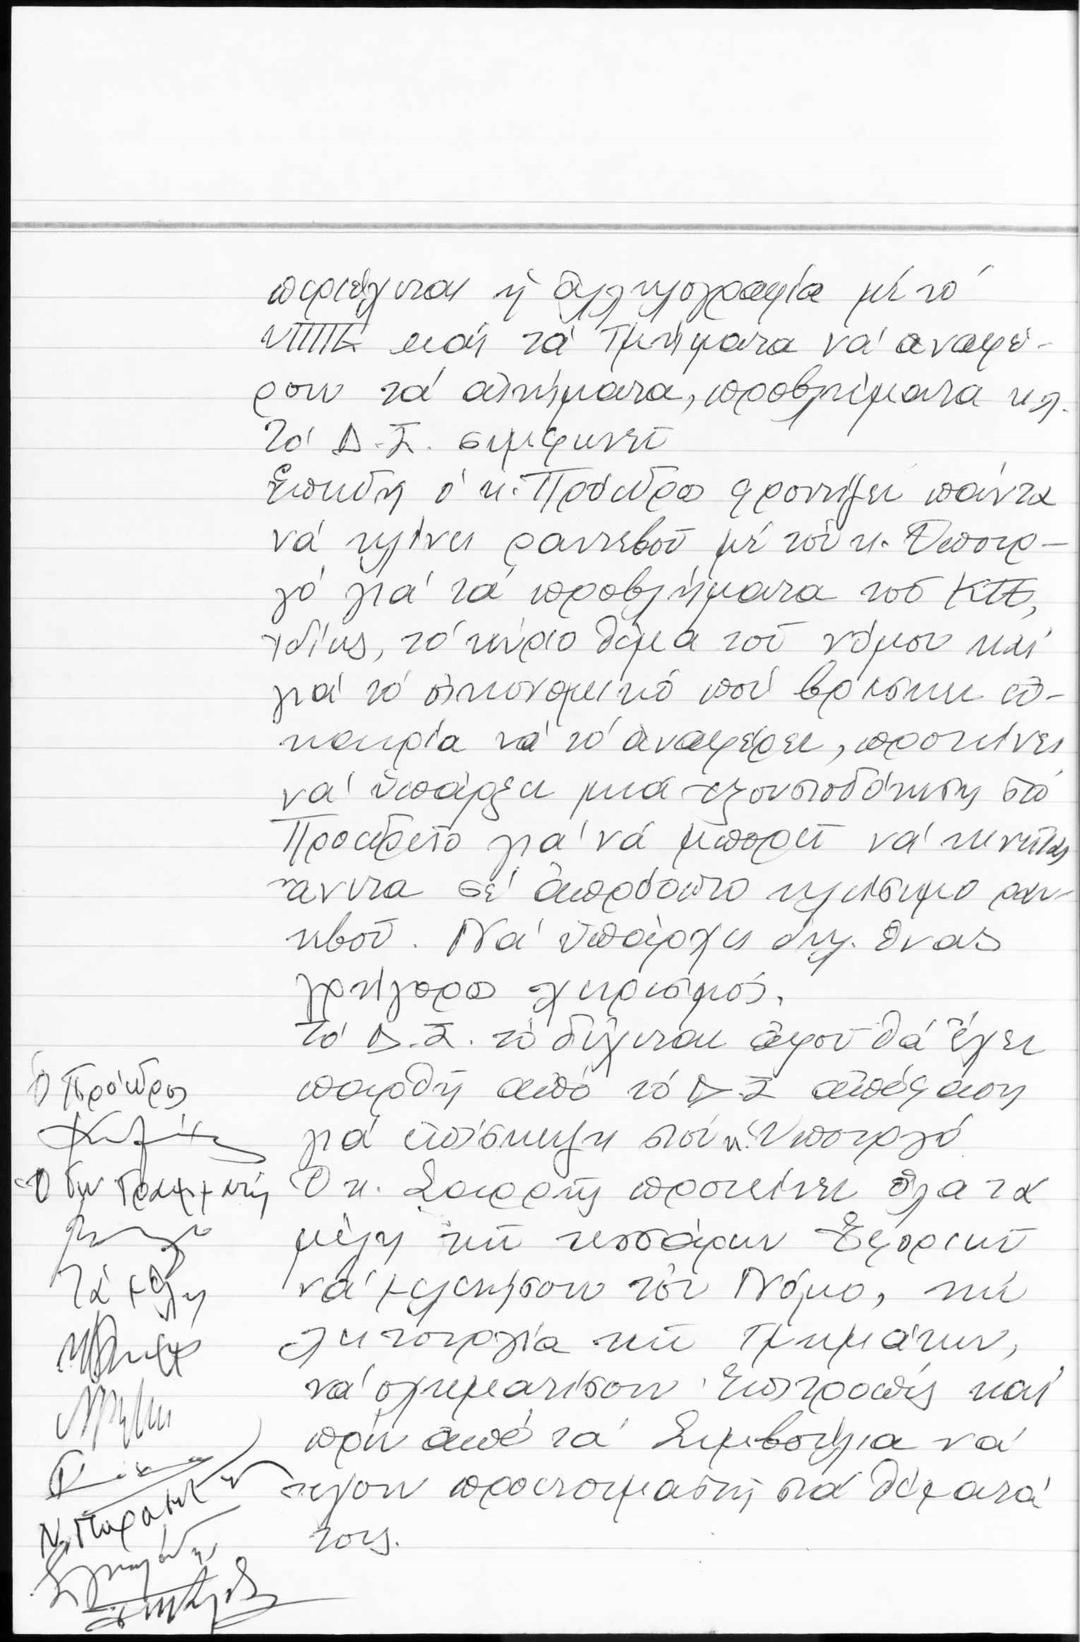 περιέχεται ἡ ἀλληλογραφία μέ τό
ΥΠΠΕ καί τά Τμήματα νά ἀναφέ-
ρουν τά αἰτήματα, προβλήματα κλ.
Τό Δ.Σ. συμφωνεῖ
Ἐπειδή ὁ κ. Πρόεδρος φροντίζει πάντα
νά κλείνει ραντεβοῦ μέ τόν κ. Ὑπουρ-
γό γιά τά προβλήματα τοῦ ΚΤΕ,
ἰδίως, τό κύριο θέμα τοῦ νόμου καί
γιά τό οἰκονομικό πού βρίσκει εὐ-
καιρία νά τό ἀναφέρει, προτείνει
νά ὑπάρξει μιά ἐξουσιοδότηση στό
Προεδρεῖο γιά νά μπορεῖ νά κινεῖται
ἄνετα σέ ἀπρόοπτο κλείσιμο ραν-
τεβοῦ. Νά ὑπάρχει δηλ. ἕνας
γρήγορος χειρισμός.
Τό Δ.Σ. τό δέχεται ἀφοῦ θά ἔχει
παρθῆ ἀπό τό Δ Σ ἀπόφαση
γιά ἐπίσκεψη στόν κ. Ὑπουργό
Ὁ κ. προτείνει ὅλα τά
μέλη τῶν τεσσάρων Ἐφοριῶν
νά μελετήσουν τόν Νόμο, τήν
λειτουργία τῶν Τμημάτων,
νά σχηματίσουν Ἐπιτροπές καί
πρίν ἀπό τά Συμβούλια νά
ἔχουν προετοιμαστῆ στά θέματά
τους.
Ὁ Πρόεδρος
Ὁ Γεν Γραμματέας
Τά μέλη